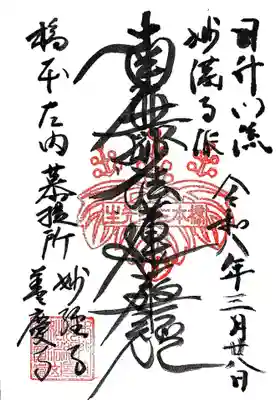 日什門流
妙満寺派
令和八年三月廿八日
南無妙法蓮華経
橋本左内菩提所
妙経寺
善慶寺